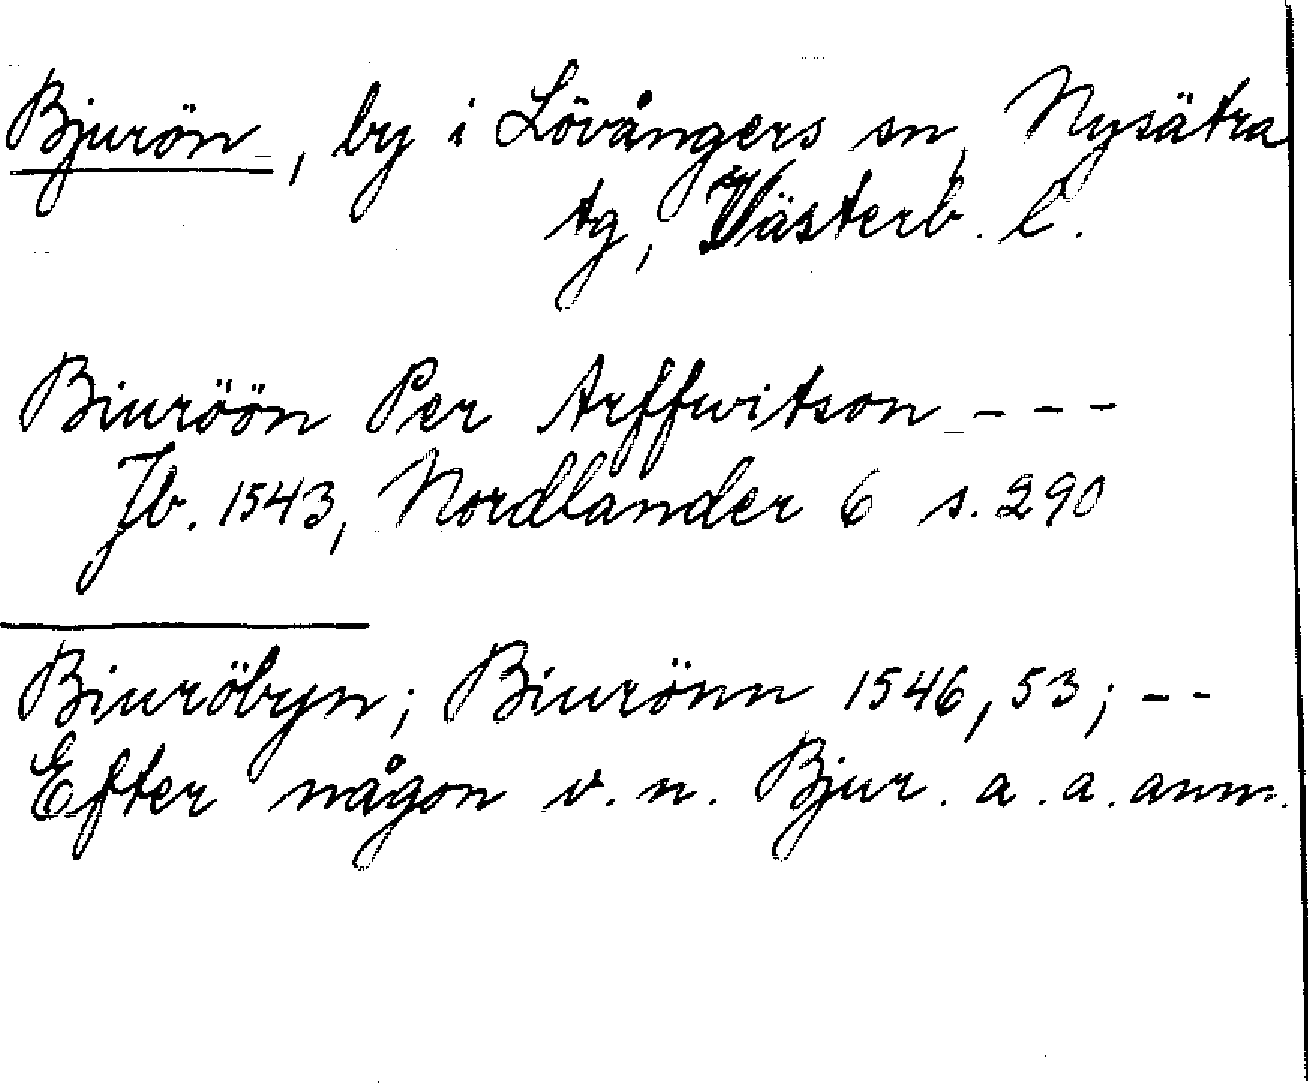 Bjurön, by i Lövångers sn, Nysätra
tg, Västerb. l.
Biuröön Per Arffwitson - - -
Jb. 1543, Nordlander 6 s. 290
Biuröbyn; Biurönn 1546, 53; - -
Efter någon v. n. Bjur. a. a. anm.